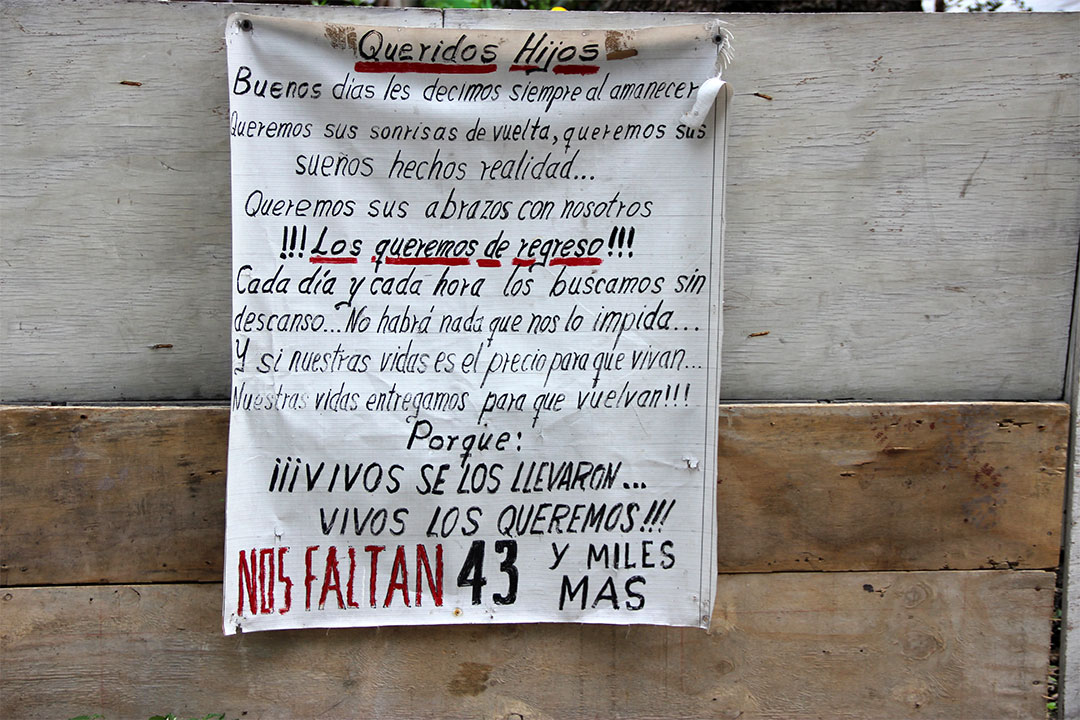 Queridos Hijos
Buenos días les decimos siempre al amanecer
Queremos sus sonrisas de vuelta, queremos sus
sueños hechos realidad...
Queremos sus abrazos con nosotros
!!!Los queremos de regreso!!!
Cada día y cada hora los buscamos sin
descanso...No habrá nada que nos lo impida...
Y si nuestras vidas es el precio para que vivan...
Nuestras vidas entregamos para que vuelvan!!!
Porque:
¡¡¡VIVOS SE LOS LLEVARON...
VIVOS LOS QUEREMOS!!!
NOS FALTAN 43 Y MILES
MAS